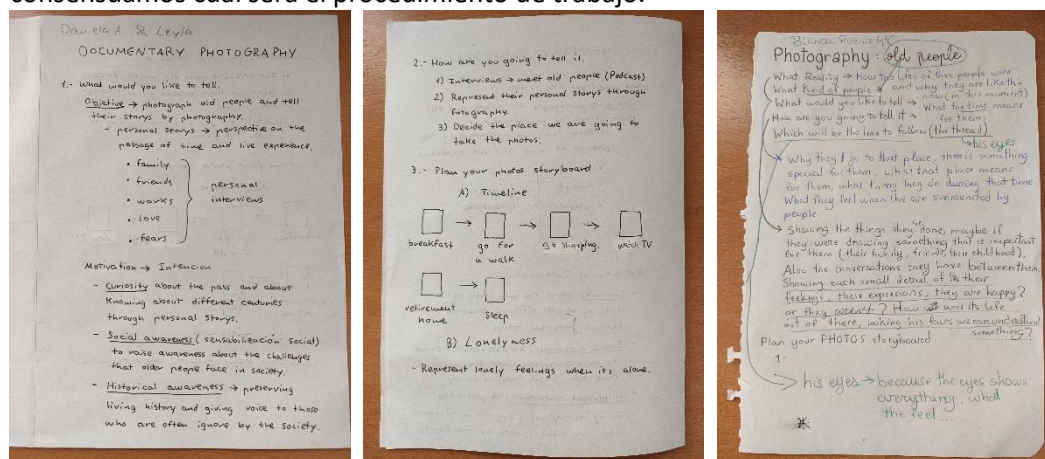 consensuamos cuál será el procedimiento de trabajo.
Daniela A. & Leyla
DOCUMENTARY PHOTOGRAPHY
1.- What would you like to tell.
Objetive → photograph old people and tell
their storys by photography.
- personal storys → perspective on the
passage of time and live experience.
• family
• friends
• works
• love
• fears
personal
interviews
MOTIVATION → Intencion
- Curiosity about the pass and about
Knowing about different centuries
through personal storys.
- Social awareness (sensabilización social)
to raise awareness about the challenges
that older people face in society.
- Historical awareness → preserving
living history and giving voice to those
who are often ignore by the society.
2.- How are you going to tell it.
1) Interviews → meet old people (Podcast)
2) Represent their personal storys through
fotography.
3) Decide the place we are going to
take the photos.
3.- Plan your photos storyboard
A) Timeline
breakfast
go for
a walk
Go shopping
watch TV
retirement
home
Sleep
B) Lonelyness
- Represent lonely feelings when its alone.
Bianca 4ºC
Photography: old people
What Reality → How the lifes of then people were
What Kind of people and why they are like this
now (in this moment)
What would you like to tell → What the time means
for them.
How are you going to tell it
Which will be the line to follow (the thread)
his eyes
Why they go to that place, there is something
special for them, what that place means
for them, what thing they do during that time
What they feel when the are surrounded by
people
Showing the things they done, maybe if
they were drawing something that is important
for them (their family, friends, their childhood),
Also the conversations they have between them.
Showing each small detail of their
feelings, their expresions, they are happy?
or they aren't? How was its life
out of there, looking his faces we can understand
something?
Plan your PHOTO'S storyboard
1-
his eyes → because the eyes shows
everything, what
the feel...